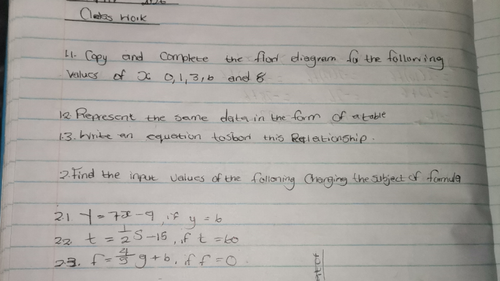 Class work
1.1. Copy and complete the flod diagram fo the following
values of x 0,1,3,6 and 8
1.2. Represent the same data in the form of a table
1.3. Write an equation to show this Relationship.
2. Find the input values of the following Changing the subject of formula
2.1 y = 7x - 9, if y = 6
2.2 t = 1/2 s - 15, if t = 60
2.3. f = 4/5 g + 6, if f = 0